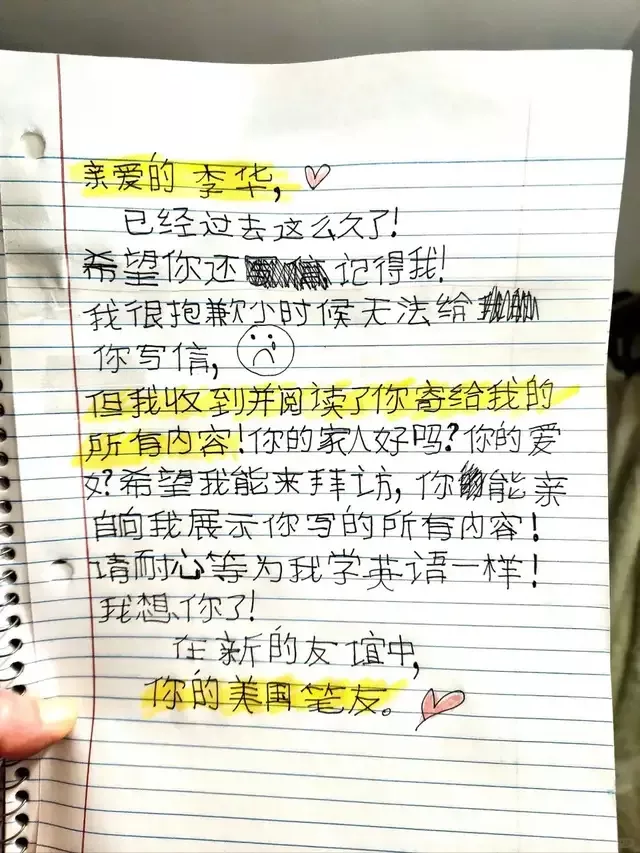 亲爱的 李华,
已经过去这么久了!
希望你还 记得我!
我很抱歉小时候无法给
你写信,
但我收到并阅读了你寄给我的
所有内容!你的家人好吗?你的爱
好?希望我能来拜访,你能亲
自向我展示你写的所有内容!
请耐心等为我学英语一样!
我想你了!
在新的友谊中,
你的美国笔友。